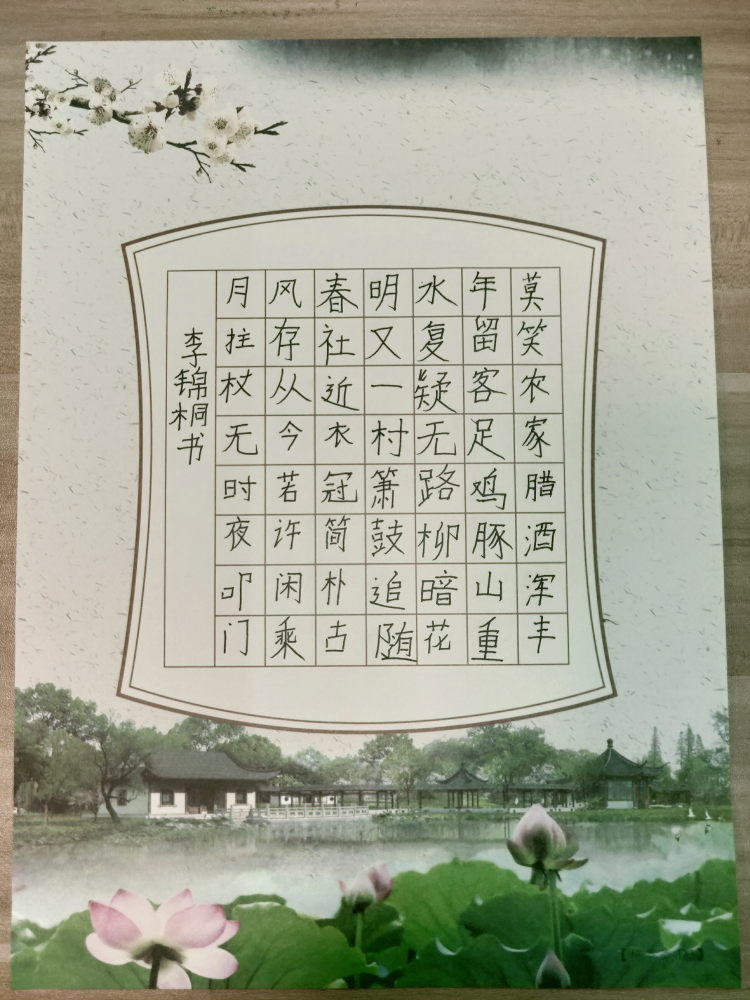 莫笑农家腊酒浑丰
年留客足鸡豚山重
水复疑无路柳暗花
明又一村箫鼓追随
春社近衣冠简朴古
风存从今若许闲乘
月拄杖无时夜叩门
李锦桐书